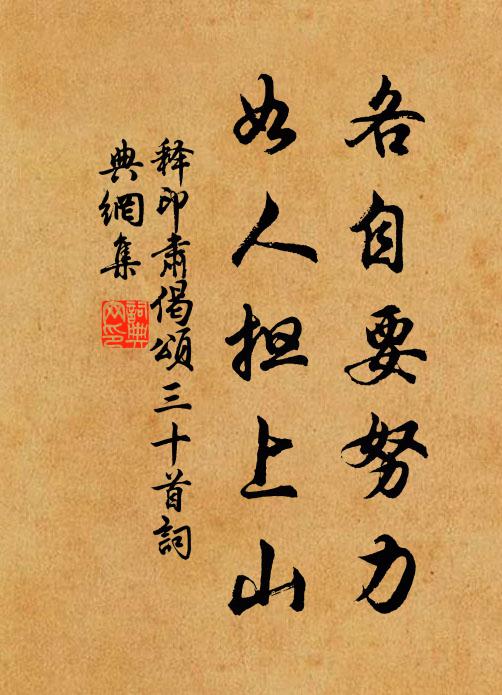 各自要努力
如人担上山
释印肃偈頌三十首詞
典網集
詞典
网印